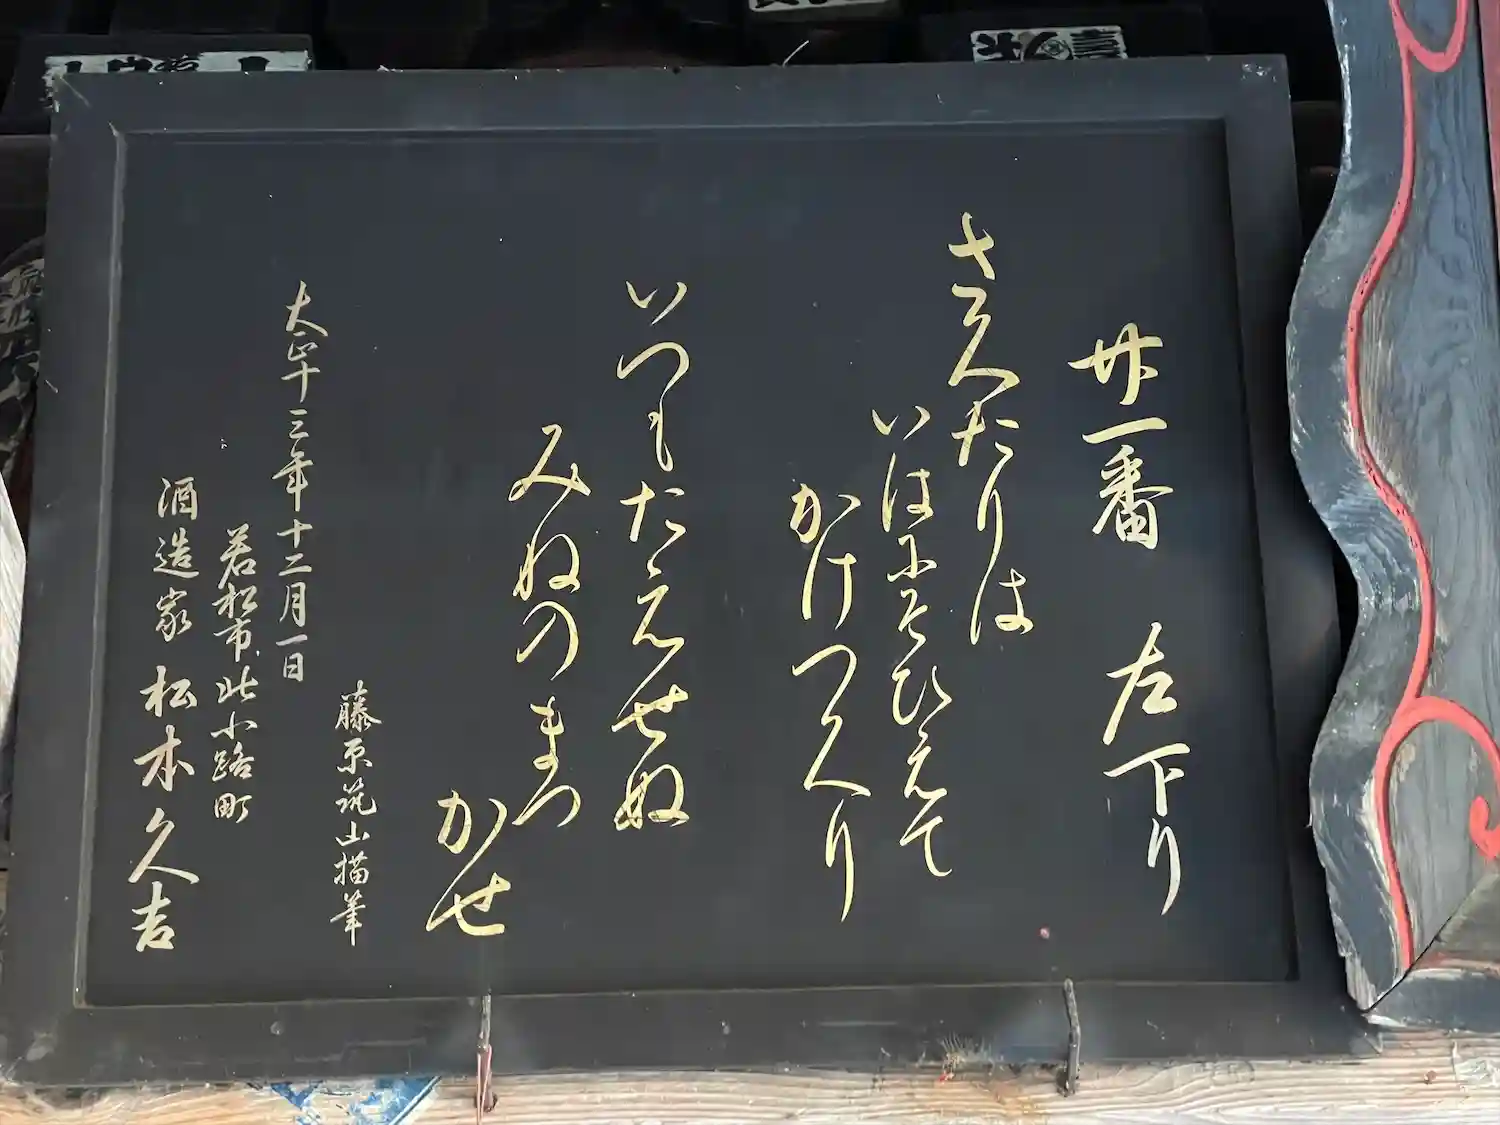 廿一番 左下り
さくたりは
いはにそひえて
かけつくり
いつもたえせぬ
みねのまつ
かせ
藤原筑山描筆
大正十三年十二月一日
若松市北小路町
酒造家 松本久吉